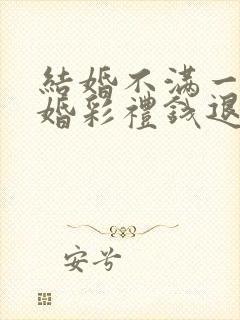 結婚不滿一
婚彩禮錢退
安兮